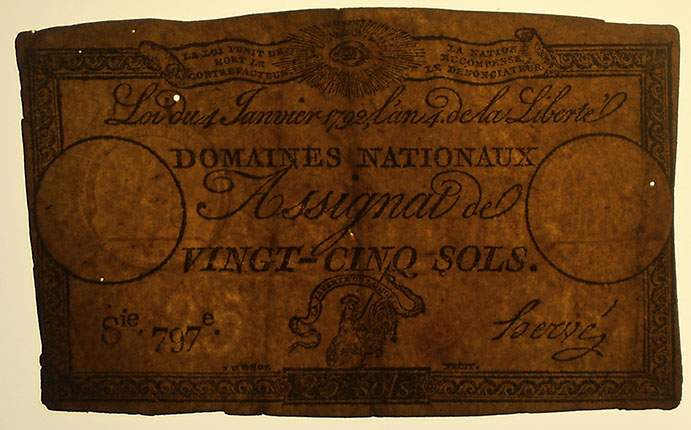 LA LOI PUNIT DE
MORT LE
CONTREFACTEUR
LA NATION
RECOMPENSE
LE DENONCIATEUR
Loi du 4 Janvier 1792, l'an 4. de la Liberté
DOMAINES NATIONAUX
Assignat de
VINGT-CINQ SOLS.
Sie. 797e.
hervé
25 sols